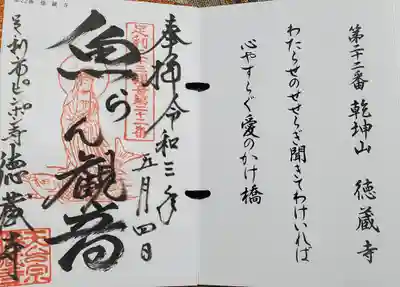 第二十二番 乾坤山 徳蔵寺
わたらせのせせらぎ聞きてわけいれば
心やすらぐ愛のかけ橋
奉拝 令和三年
五月四日
足利三十三観音第二十二番
魚らん観音
足利市 徳蔵寺